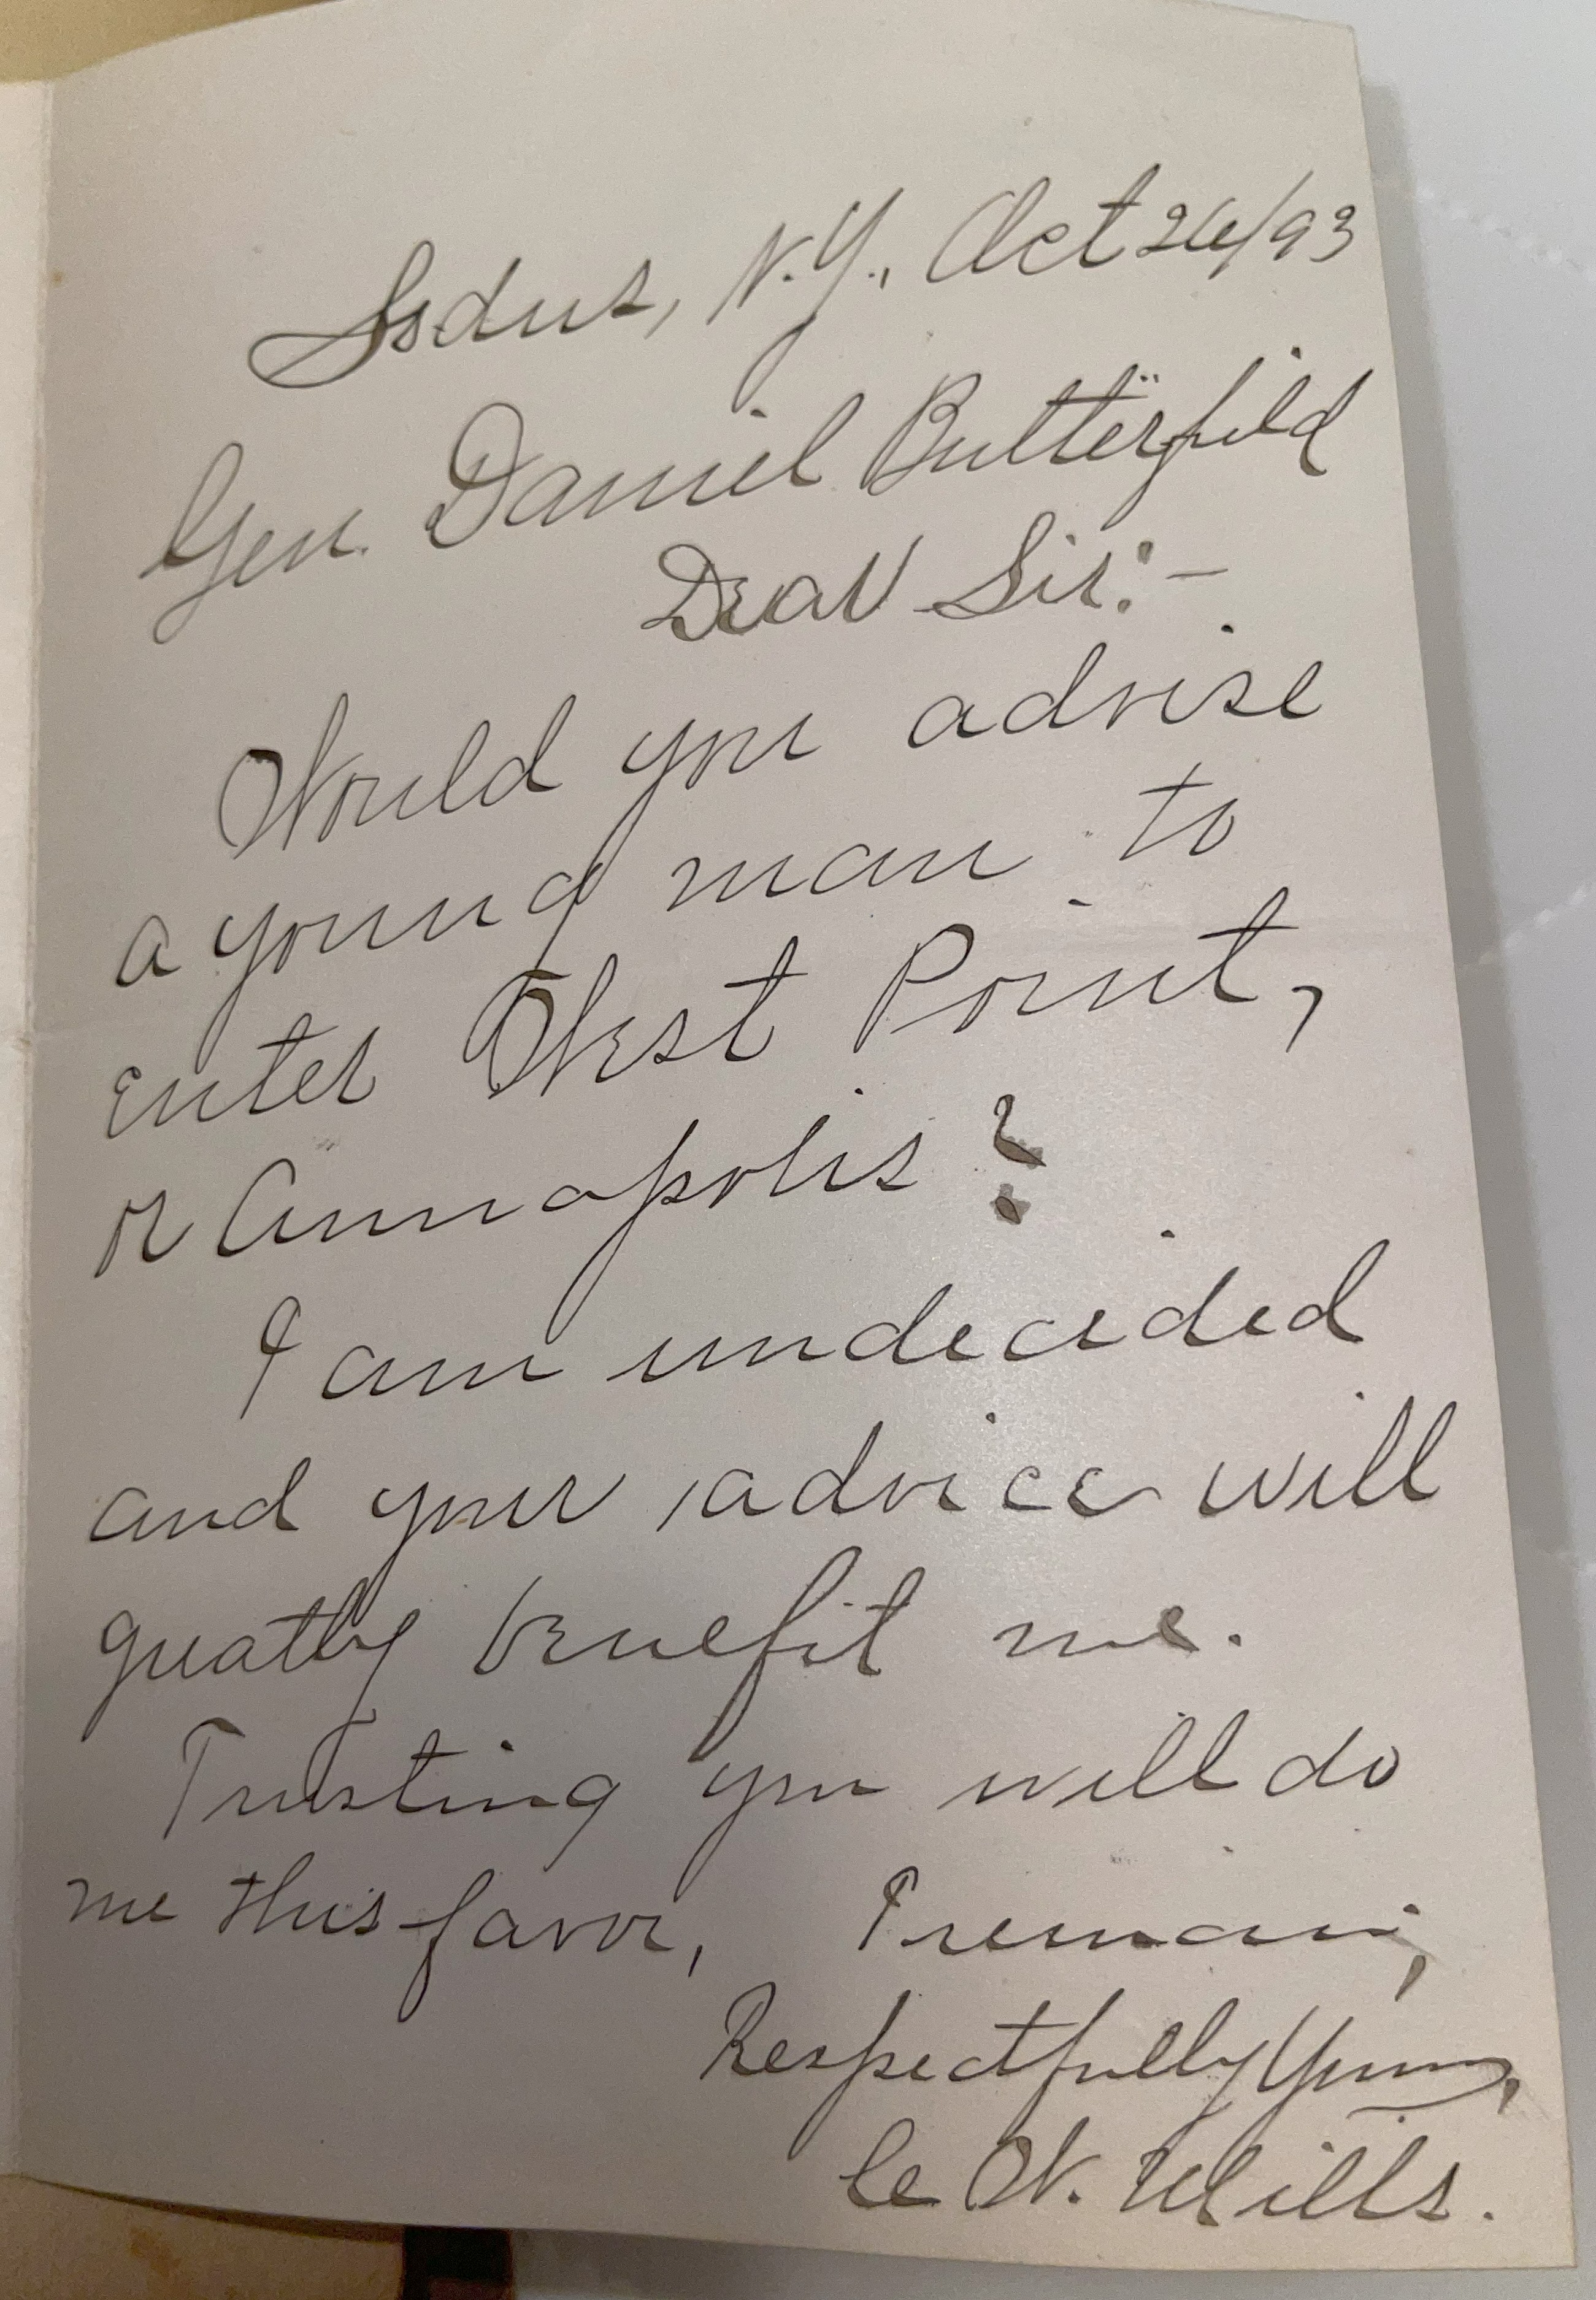 Sodus, N.Y., Oct 26/93
Gen. Daniel Butterfield
Dear Sir:-
Would you advise
a young man to
enter West Point,
or Annapolis?
I am undecided
and your advice will
greatly benefit me.
Trusting you will do
me this favor, I remain,
Respectfully Yours,
W. Mills.